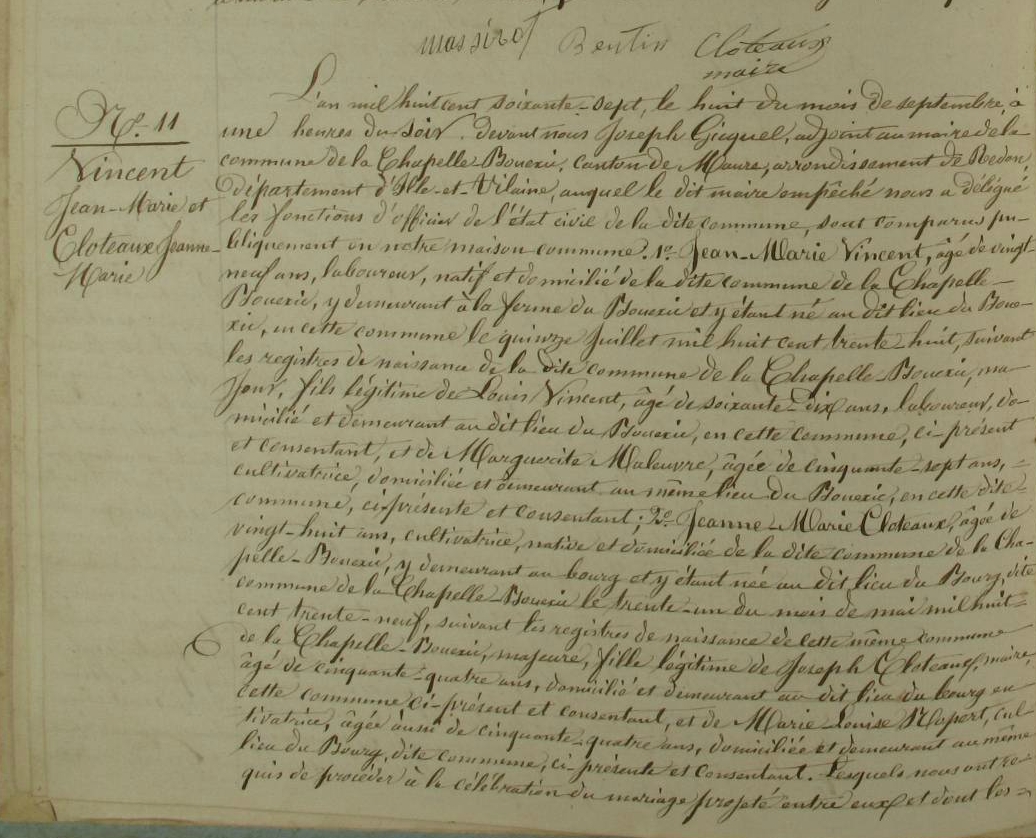 massirot Bentin Cloteaux
maire
Nº. 11
Vincent
Jean-Marie et
Cloteaux Jeanne-
Marie
L'an mil huit cent soixante-sept, le huit du mois de septembre, à
une heures du soir. devant nous Joseph Gicquel, adjoint au maire de la
commune de la Chapelle-Bouexic, canton de Maure, arrondissement de Redon
Département d'Ille-et-Vilaine, auquel le dit maire empêché nous a délégué
les fonctions d'officier de l'état civil de la dite commune, sont comparus pu-
bliquement en notre maison commune. 1º Jean-Marie Vincent, âgé de vingt
neuf ans, laboureur, natif et domicilié de la dite commune de la Chapelle-
Bouexic, y demeurant à la ferme du Bouexic et y étant né au dit lieu du Boue-
xic, en cette commune le quinze Juillet mil huit cent trente-huit, suivant
les registres de naissance de la dite commune de la Chapelle-Bouexic, ma-
jeur, fils légitime de Louis Vincent, âgé de soixante-dix ans, laboureur, do-
micilié et demeurant au dit lieu du Bouexic, en cette commune, ci-présent
et consentant, et de Marguerite Maleuvre, âgée de cinquante-sept ans, =
cultivatrice, domiciliée et demeurant au même lieu du Bouexic, en cette dite
commune, ci-présente et consentant; 2º Jeanne-Marie Cloteaux, âgée de
vingt-huit ans, cultivatrice, native et domiciliée de la dite commune de la Cha-
pelle-Bouexic, y demeurant au bourg et y étant née au dit lieu du Bourg, dite
commune de la Chapelle-Bouexic le trente-un du mois de mai mil huit=
cent trente-neuf, suivant les registres de naissance de cette même commune
de la Chapelle-Bouexic, majeure, fille légitime de Joseph Cloteaux, maire
âgé de cinquante-quatre ans, domicilié et demeurant au dit lieu du bourg en
cette commune, ci-présent et consentant, et de Marie-Louise cul-
tivatrice, âgée aussi de cinquante-quatre ans, domiciliée et demeurant au même
lieu du Bourg, dite commune, ci-présente et consentant. Lesquels nous ont re-
quis de procéder à la célébration du mariage projeté entre eux et dont les=